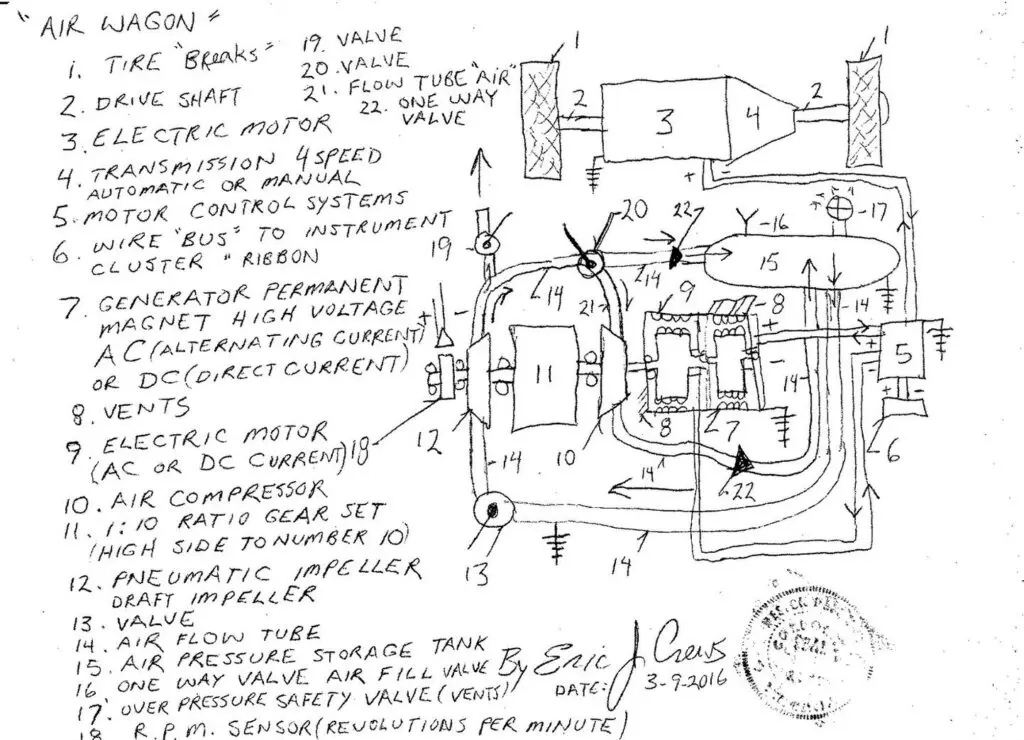 "AIR WAGON"
1. TIRE "Breaks"
2. DRIVE SHAFT
3. ELECTRIC MOTOR
4. TRANSMISSION 4 SPEED
AUTOMATIC OR MANUAL
5. MOTOR CONTROL SYSTEMS
6. WIRE "BUS" TO INSTRUMENT
CLUSTER "RIBBON
7. GENERATOR PERMANENT
MAGNET HIGH VOLTAGE
AC (ALTERNATING CURRENT)
OR DC (DIRECT CURRENT)
8. VENTS
9. ELECTRIC MOTOR
(AC OR DC CURRENT)
10. AIR COMPRESSOR
11. 1:10 RATIO GEAR SET
(HIGH SIDE TO NUMBER 10)
12. PNEUMATIC IMPELLER
DRAFT IMPELLER
13. VALVE
14. AIR FLOW TUBE
15. AIR PRESSURE STORAGE TANK
16. ONE WAY VALVE AIR FILL VALVE
17. OVER PRESSURE SAFETY VALVE (VENTS)
18 R.P.M. SENSOR (REVOLUTIONS PER MINUTE)
19. VALVE
20. VALVE
21. FLOW TUBE "AIR"
22. ONE WAY
VALVE
1 1
2 3 4 2
+ -
19 20 22 -16 -17
14 14 15 -14
21 9 -8
+ - + -
18 12 11 10 8 7 14 5
+ -
+ -
14 14 22 6
13 14
By Eric J Crews
DATE: 3-9-2016